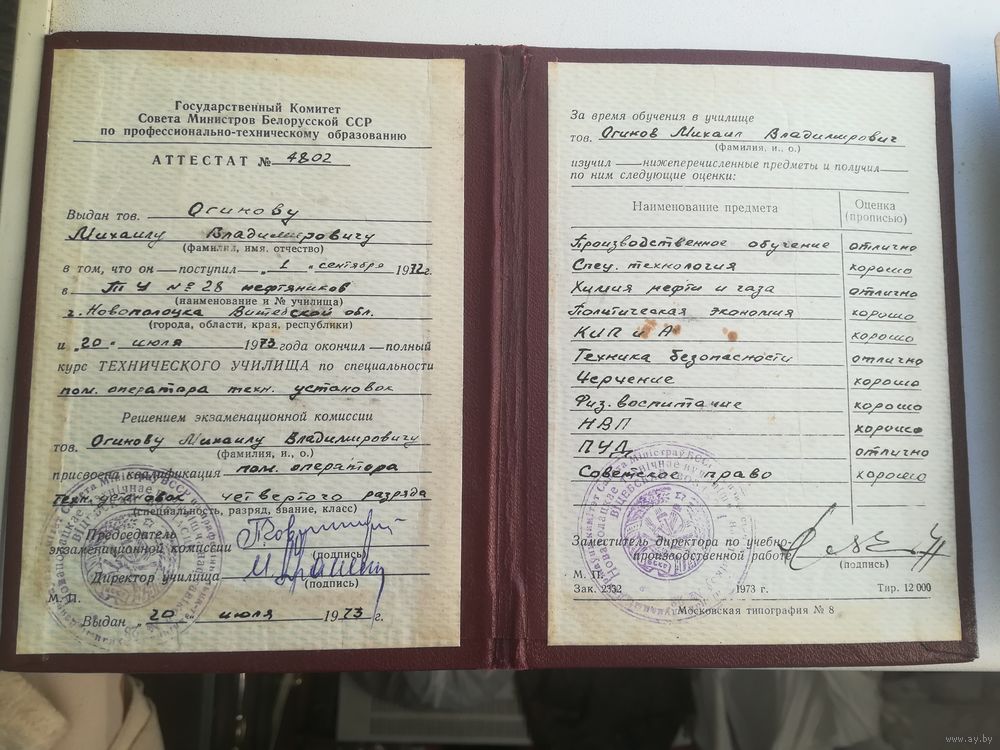 Государственный Комитет
Совета Министров Белорусской ССР
по профессионально-техническому образованию
АТТЕСТАТ № 4802
Выдан тов. Огинову
Михаилу Владимировичу
(фамилия, имя, отчество)
в том, что он — поступил „1“ сентября 1972г.
в ТУ № 28 нефтяников
(наименование и № училища)
г. Новополоцка Витебской обл.
(города, области, края, республики)
и „20“ июля 1973 года окончил — полный
курс ТЕХНИЧЕСКОГО УЧИЛИЩА по специальности
пом. оператора техн. установок
Решением экзаменационной комиссии
тов. Огинову Михаилу Владимировичу
(фамилия, и., о.)
присвоена квалификация пом. оператора
техн. установок четвертого разряда
(специальность, разряд, звание, класс)
Председатель
экзаменационной комиссии
(подпись)
Директор училища
(подпись)
М. П.
Выдан „20“ июля 1973 г.
За время обучения в училище
тов. Огинов Михаил Владимирович
(фамилия, и., о.)
изучил — нижеперечисленные предметы и получил —
по ним следующие оценки:
Наименование предмета Оценка (прописью)
Производственное обучение отлично
Спец. технология хорошо
Химия нефти и газа отлично
Политическая экономия хорошо
КИП и А хорошо
Техника безопасности отлично
Черчение хорошо
Физ. воспитание хорошо
НВП хорошо
ПУД отлично
Советское право хорошо
Заместитель директора по учебно-
производственной работе
(подпись)
М. П.
Зак. 2332 1973 г. Тир. 12 000
Московская типография № 8
www.ay.by